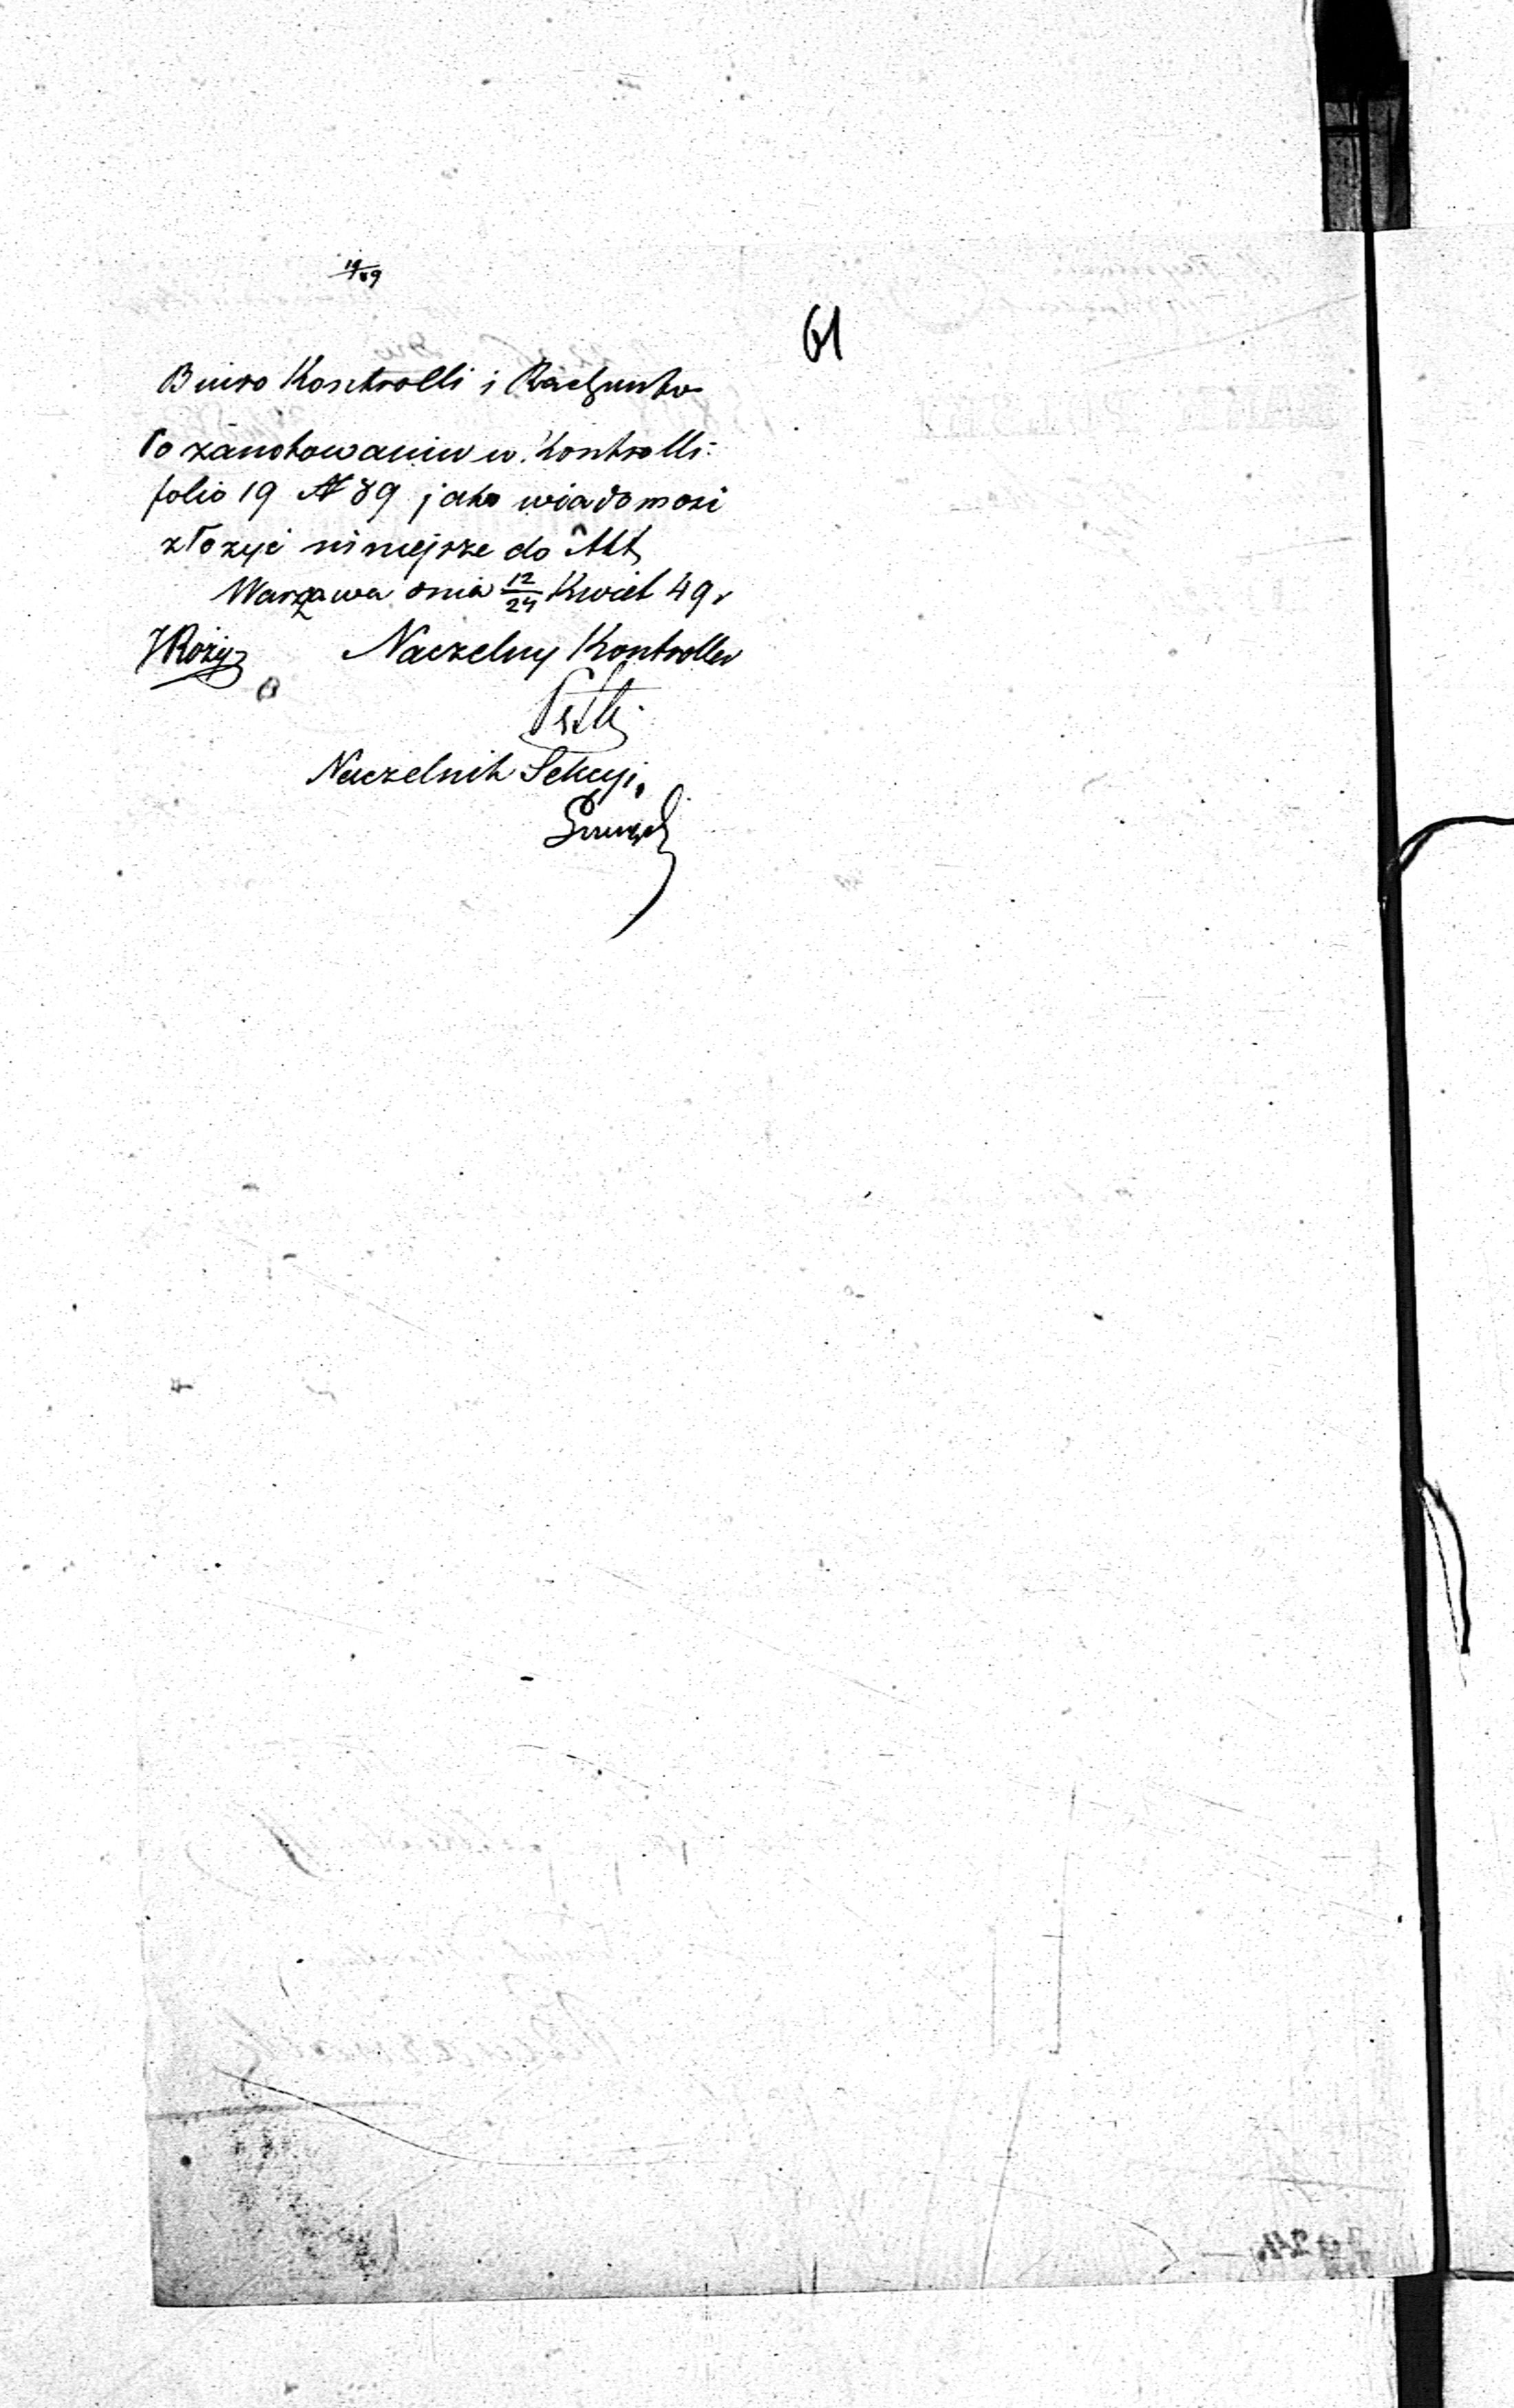 19/89
61
Biuro Kontrolli i Rachunko
Po zanotowaniu w Kontrolli
folio 19 N 89 jako wiadomość
złożyć niniejsze do Akt
Warszawa dnia 12/24 Kwiet 49 r
Naczelny Kontroller
Naczelnik Sekcyi